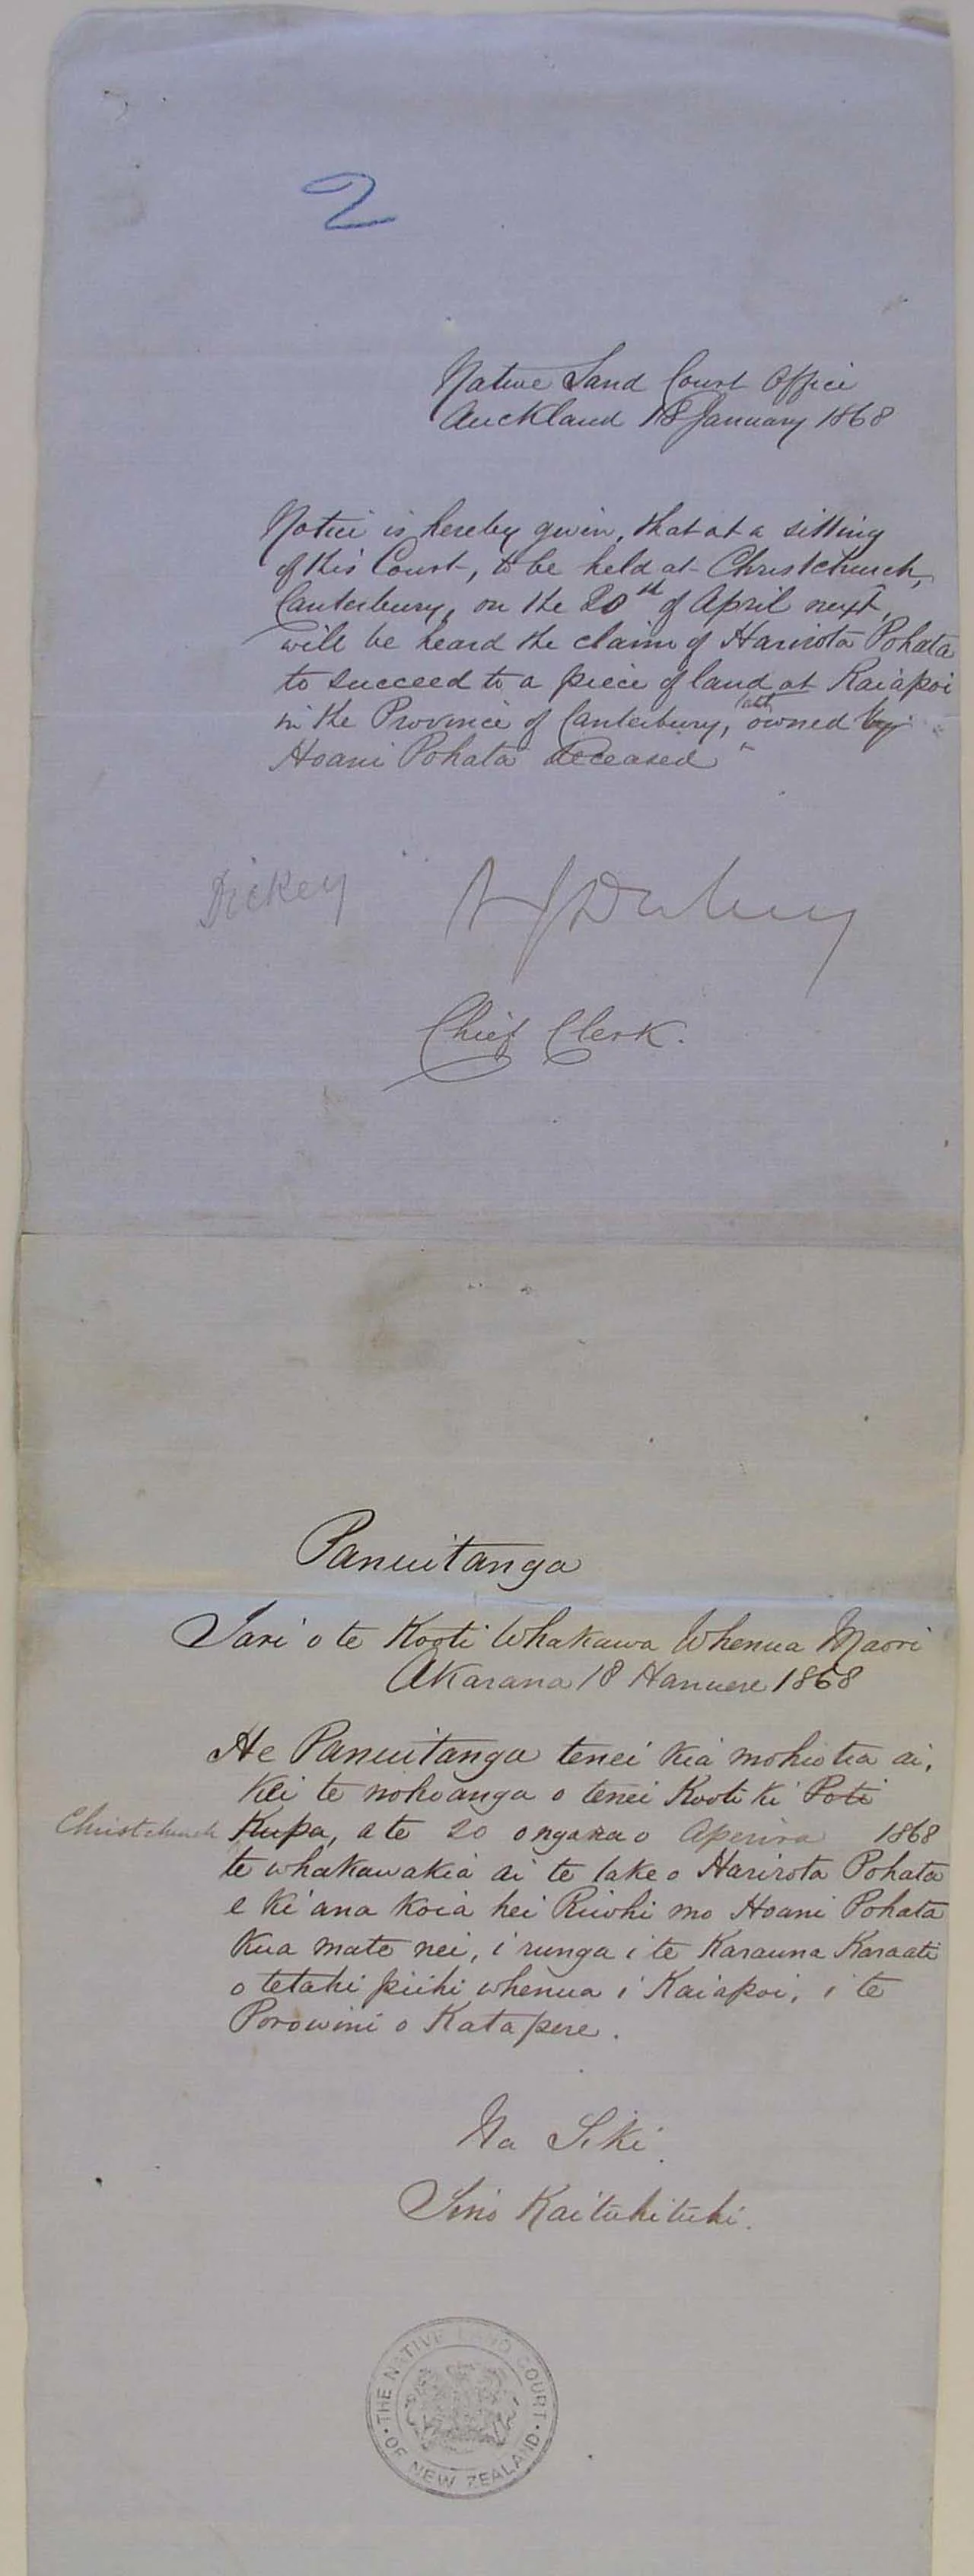 2
Native Land Court Office
Auckland 18 January 1868
Notice is hereby given, that at a sitting
of this Court, to be held at Christchurch,
Canterbury, on the 20th of April next,
will be heard the claim of Harirota Pohata
to succeed to a piece of land at Kaiapoi
in the Province of Canterbury, owned by
Hoani Pohata deceased
Dickey
Chief Clerk.
Panuitanga
Tari o te Kooti Whakawa Whenua Maori
Akarana 18 Hanuere 1868
He Panuitanga tenei kia mohiotia ai,
kei te nohoanga o tenei Kooti ki Poti
Christchurch Kupa, a te 20 o nga ra o Aperira 1868
te whakawakia ai te take o Harirota Pohata
e ki ana koia hei Riiwhi mo Hoani Pohata
kua mate nei, i runga i te Karauna Karaati
o tetahi piihi whenua i Kaiapoi, i te
Porowini o Katapere.
Na Tiki.
Tino Kaituhituhi.
THE NATIVE LAND COURT
OF NEW ZEALAND